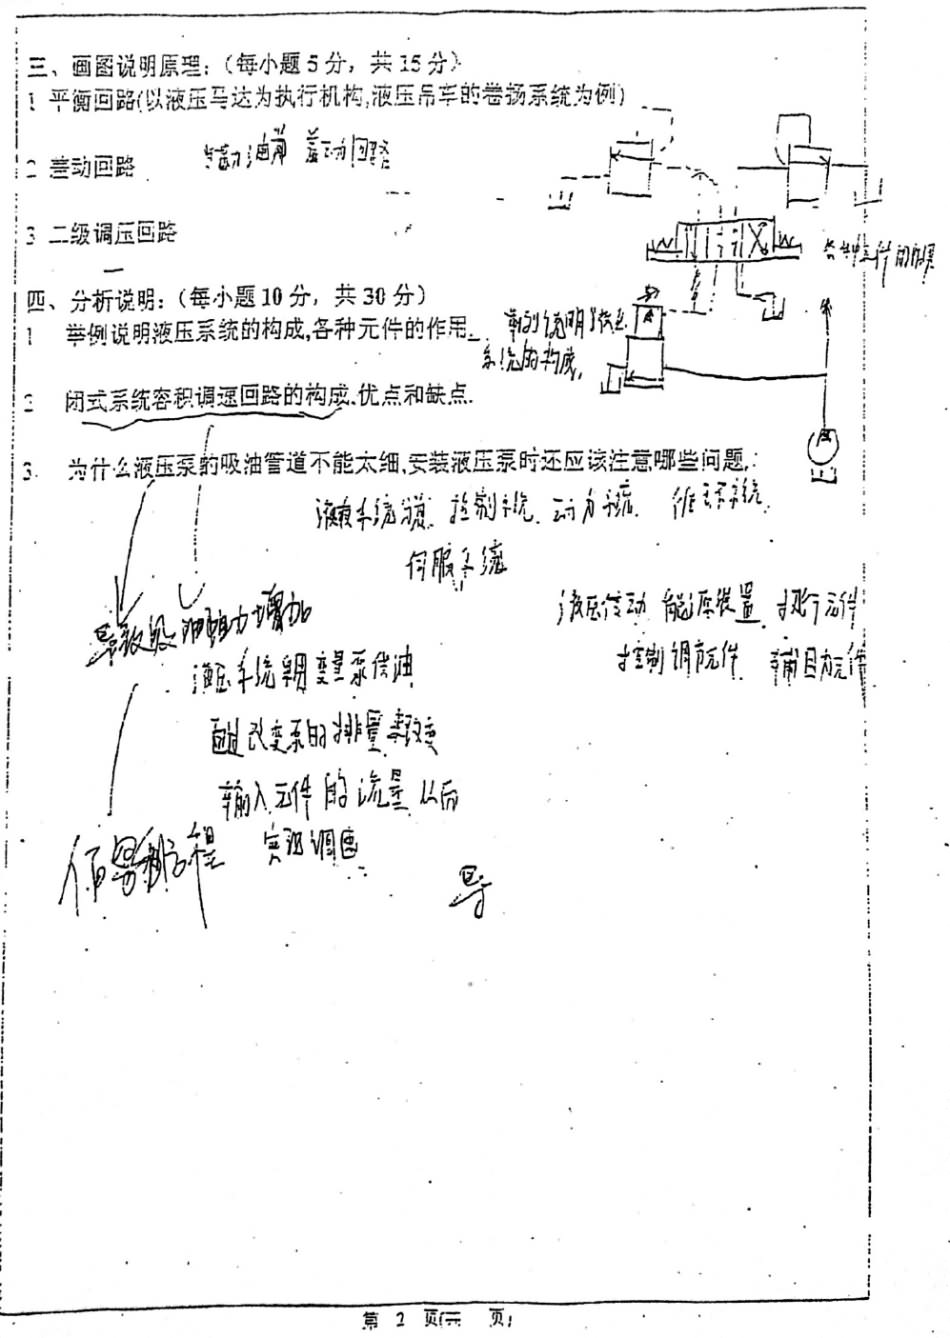 三、画图说明原理:(每小题5分，共15分)
1 平衡回路(以液压马达为执行机构,液压吊车的卷扬系统为例)
2 差动回路 油 差动回路
3 二级调压回路
四、分析说明:(每小题10分，共30分)
1 举例说明液压系统的构成,各种元件的作用.
举例说明液压
系统的构成,
2 闭式系统容积调速回路的构成.优点和缺点.
3. 为什么液压泵的吸油管道不能太细,安装液压泵时还应该注意哪些问题,
控制系统. 动力系统
伺服系统
导致吸油阻力增加
液压传动 能源装置 执行元件
控制调节元件 辅助元件
液压系统用变量泵供油
通过改变泵的排量来改变
输入元件的流量从而
实现调速
导
第 2 页(共 页)